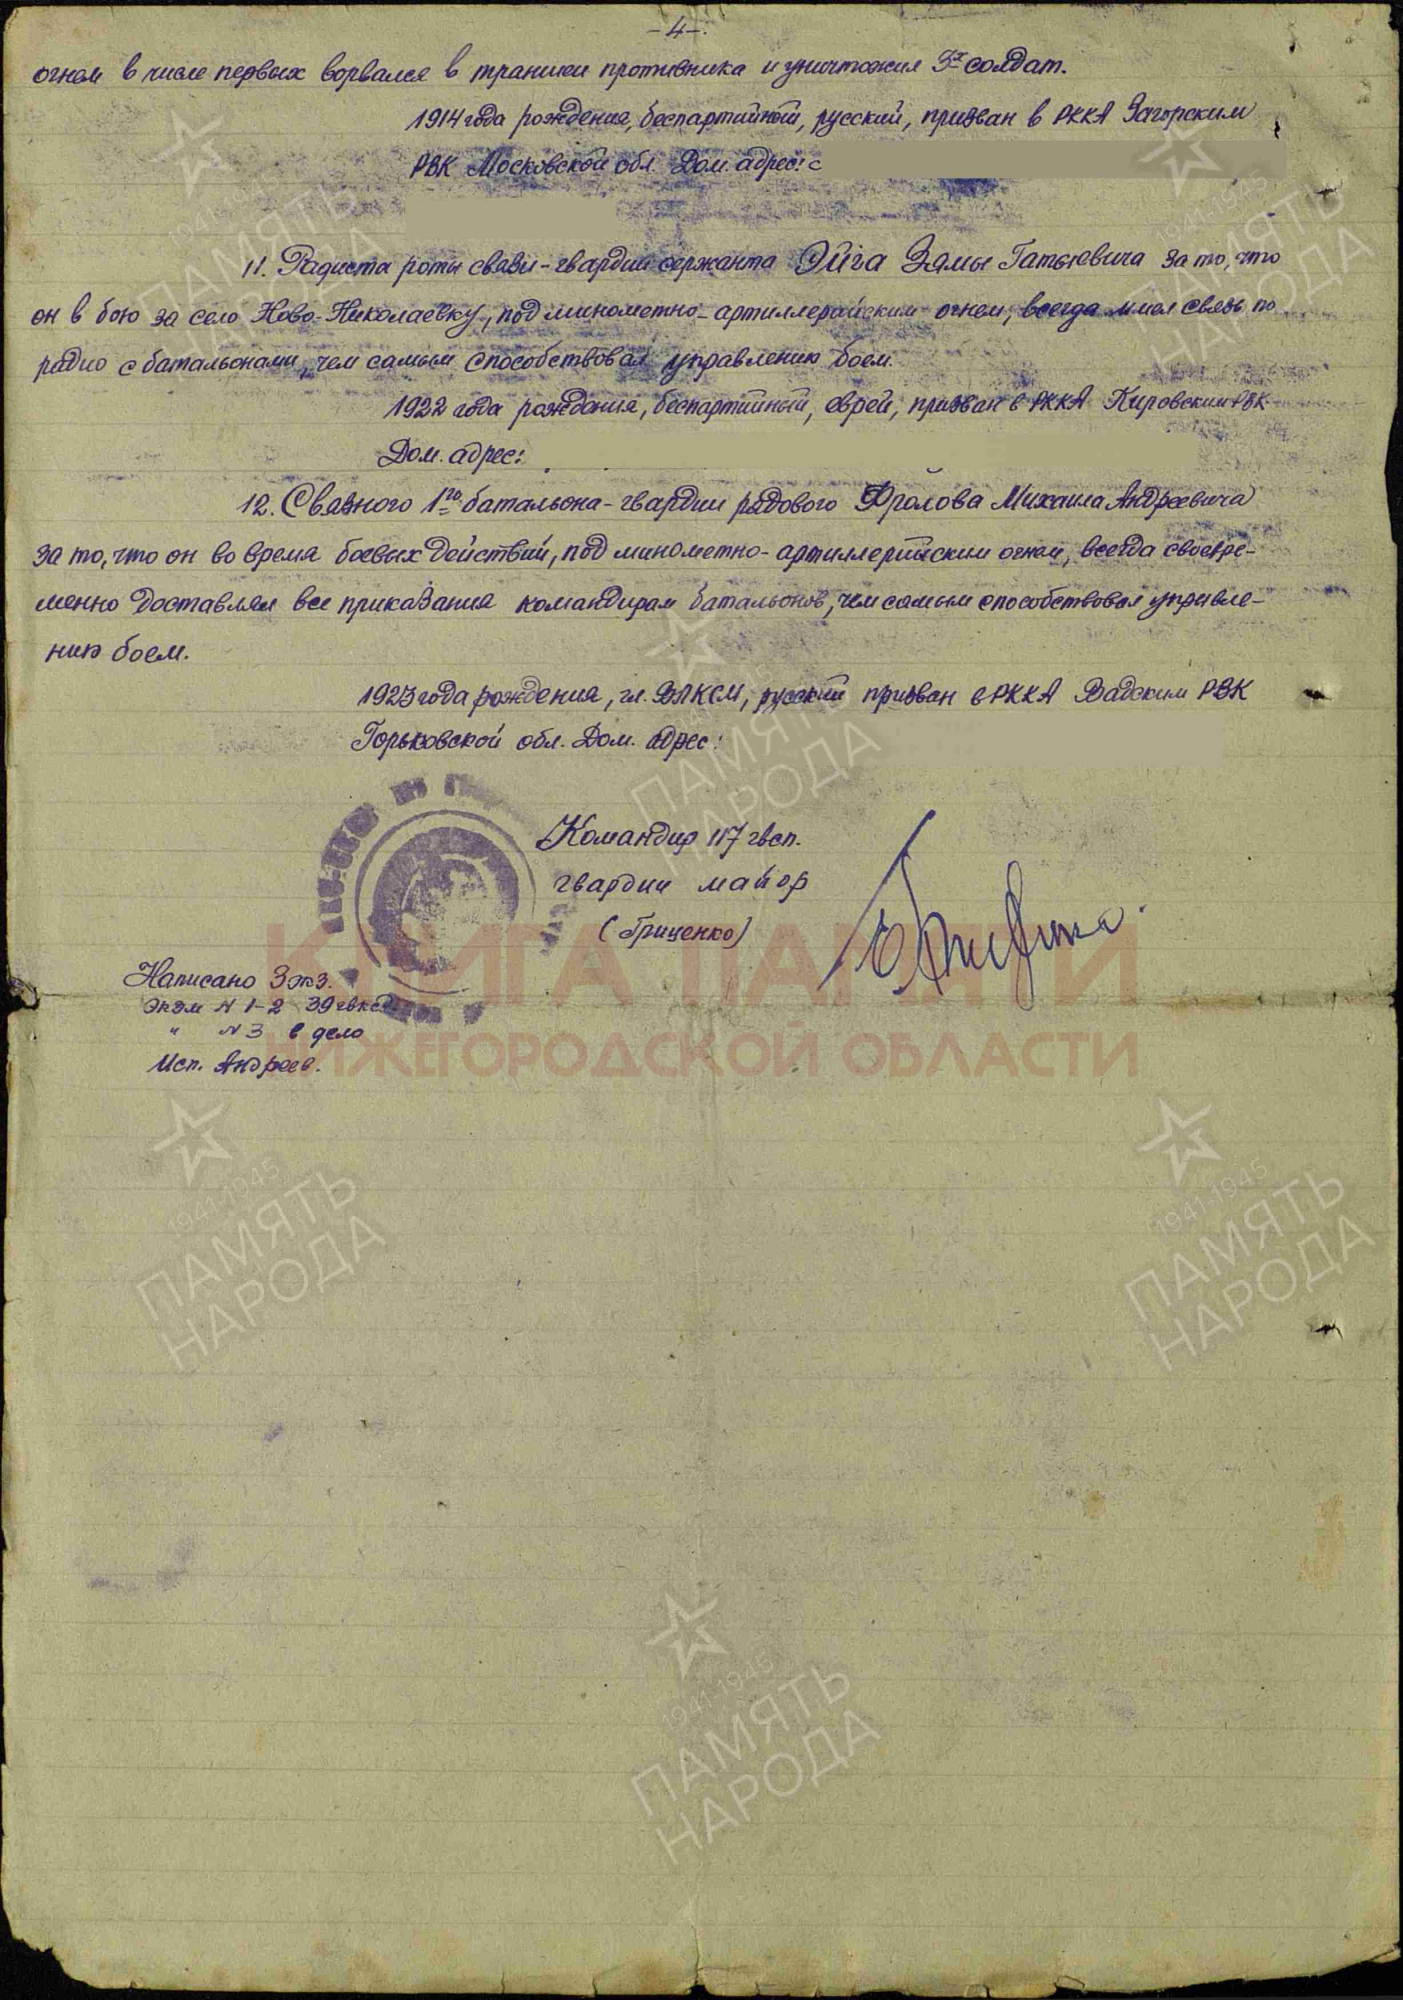 -4-
огнем в числе первых ворвался в траншеи противника и уничтожил 3х солдат.
1914 года рождения, беспартийный, русский, призван в РККА Загорским
РВК Московской обл. Дом. адрес: с
11. Радиста роты связи - гвардии сержанта Эйга Зямы Гатыевича за то, что
он в бою за село Ново-Николаевку, под минометно-артиллерийским огнем, всегда имел связь по
радио с батальонами, чем самым способствовал управлению боем.
1922 года рождения, беспартийный, еврей, призван в РККА Кировским РВК
Дом. адрес:
12. Связного 1го батальона - гвардии рядового Фролова Михаила Андреевича
за то, что он во время боевых действий, под минометно-артиллерийским огнем, всегда своевре-
менно доставлял все приказания командирам батальонов, чем самым способствовал управле-
нию боем.
1923 года рождения, чл. ВЛКСМ, русский призван в РККА Вадским РВК
Горьковской обл. Дом. адрес:
Командир 117 гвсп.
гвардии майор
(Гриценко)
Написано 3 экз.
Экзм N 1-2 39 гвксд
" N 3 в дело
Исп. Андреев.
КНИГА ПАМЯТИ
НИЖЕГОРОДСКОЙ ОБЛАСТИ
1941-1945
ПАМЯТЬ
НАРОДА
1941-1945
ПАМЯТЬ
НАРОДА
1941-1945
ПАМЯТЬ
НАРОДА
1941-1945
ПАМЯТЬ
НАРОДА
1941-1945
ПАМЯТЬ
НАРОДА
1941-1945
ПАМЯТЬ
НАРОДА